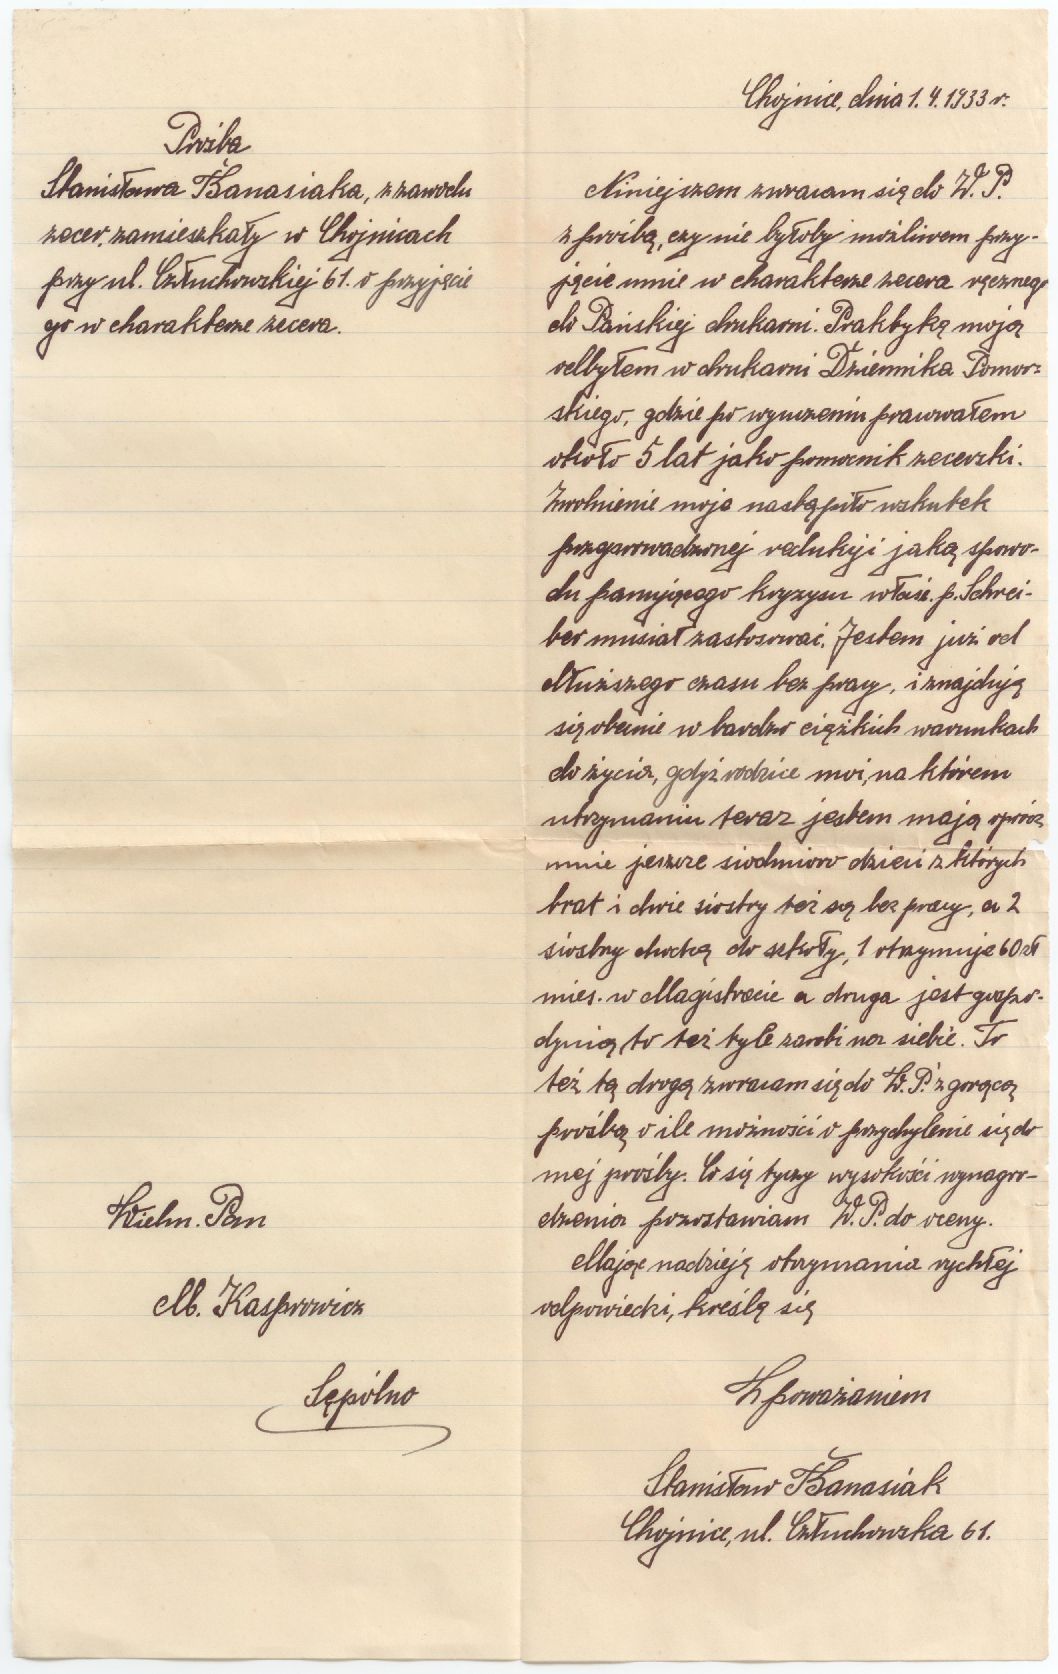 Chojnice, dnia 1.4.1933 r.
Prośba
Stanisława Banasiaka, z zawodu
zecer, zamieszkały w Chojnicach
przy ul. Człuchowskiej 61. o przyjęcie
go w charakterze zecera.
Wielm. Pan
M. Kasprowicz
Sępólno
Niniejszem zwracam się do W. P.
z prośbą, czy nie byłoby możliwem przy-
jęcie mnie w charakterze zecera ręcznego
do Pańskiej drukarni. Praktykę moją
odbyłem w drukarni Dziennika Pomor-
skiego, gdzie po wyuczeniu pracowałem
około 5 lat jako pomocnik zecerski.
Zwolnienie moje nastąpiło wskutek
przeprowadzonej redukcji jaką spowo-
du panującego kryzysu właśc. p. Schrei-
ber musiał zastosować. Jestem już od
dłuższego czasu bez pracy, i znajduję
się obecnie w bardzo ciężkich warunkach
do życia, gdyż rodzice moi, na którem
utrzymaniu teraz jestem mają oprócz
mnie jeszcze siedmioro dzieci z których
brat i dwie siostry też są bez pracy, a 2
siostry chodzą do szkoły, 1 otrzymuje 60 zł
mies. w Magistracie a druga jest gospo-
dynią, to też tyle zarobi na siebie. To
też tą drogą zwracam się do W. P. z gorącą
prośbą o ile możności o przychylenie się do
mej prośby. Co się tyczy wysokości wynagro-
dzenia pozostawiam W. P. do oceny.
Mając nadzieję otrzymania rychłej
odpowiedzi, kreślę się
Z poważaniem
Stanisław Banasiak
Chojnice, ul. Człuchowska 61.